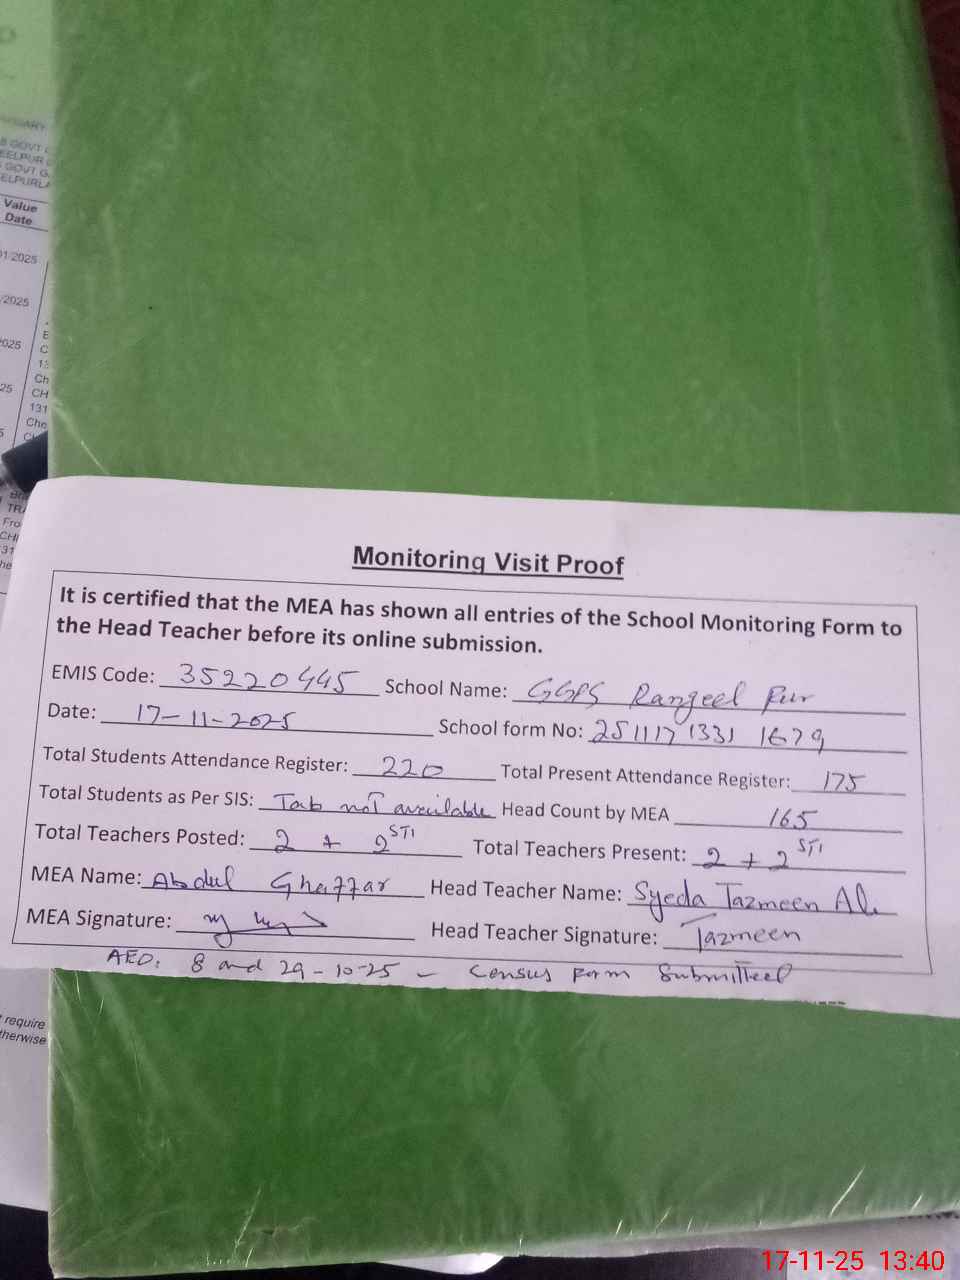 SARY
GOVT
EELPUR
GOVT G
ELPURLA
Value
Date
01/2025
/2025
2025
25
13
Ch
CH
131
Che
TRA
Fro
CHI
31
he
Monitoring Visit Proof
It is certified that the MEA has shown all entries of the School Monitoring Form to
the Head Teacher before its online submission.
EMIS Code: 35220445 School Name: GGPS Rangeel Pur
Date: 17-11-2025 School form No: 251117 1331 1679
Total Students Attendance Register: 220 Total Present Attendance Register: 175
Total Students as Per SIS: Tab not available Head Count by MEA 165
Total Teachers Posted: 2 + 2 STI Total Teachers Present: 2 + 2 STI
MEA Name: Abdul Ghaffar Head Teacher Name: Syeda Tazmeen Ali
MEA Signature: Head Teacher Signature: Tazmeen
AEO: 8 and 29-10-25 - Census form Submitted
require
therwise
17-11-25 13:40